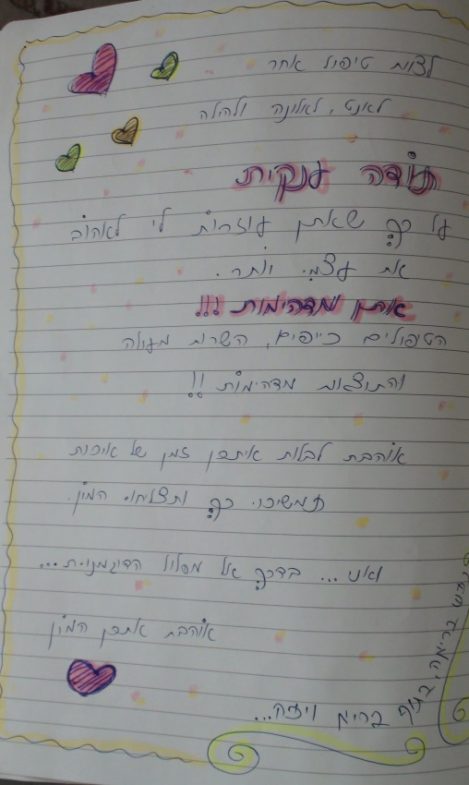 לצוות טיפול אחר
לאנט, לאלונה ולהילה
תודה ענקית
על כך שאתן עוזרות לי לאהוב
את עצמי יותר.
אתן מדהימות !!!
הטפולים כייפים, השרות מעולה
והתוצאות מדהימות !!
אוהבת לבלות איתכן זמן של איכות
תמשיכו כך ותצליחו המון.
ואני... בדרך אל מסלול הדוגמנות...
אוהבת אתכן המון
בריאה, בגוף בריא ויפה...